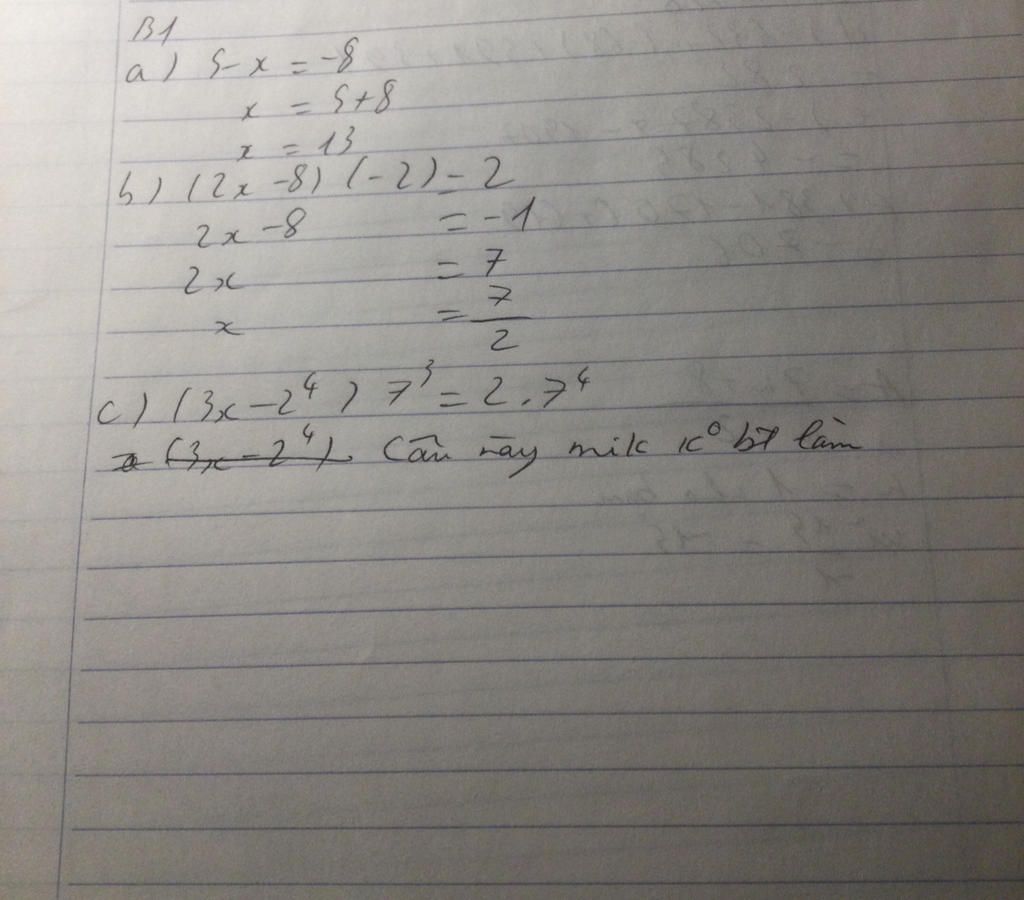 B1
a) 5 - x = -8
x = 5 + 8
x = 13
b) (2x - 8) (-2) = 2
2x - 8 = -1
2x = 7
x = 7/2
c) (3x - 2⁴) 7³ = 2.7⁴
(3x - 2⁴). Câu này mik k⁰ bt làm